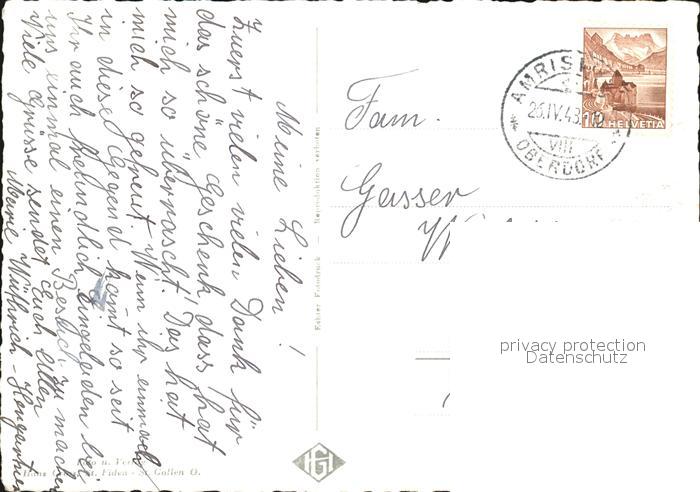 Meine Lieben!
Zuerst vielen vielen Dank für
das schöne Geschenk, dass hat
mich so überrascht! Das hat
mich so gefreut. Wenn ihr einmal
in diese Gegend komt so seit
Ihr auch freundlich eingeladen bei
uns einmal einen Besuch zu machen
Viele Grüsse sendet Euch allen
Marie Wüthrich-Hungartner
Fam.
Gasser
AMRIS
26.IV.43.
VIII
OBERDORF
10 HELVETIA
Echter Fotodruck — Reproduktion verboten
Foto u. Verl.
Hans Gross, St. Fiden - St. Gallen O.
privacy protection
Datenschutz